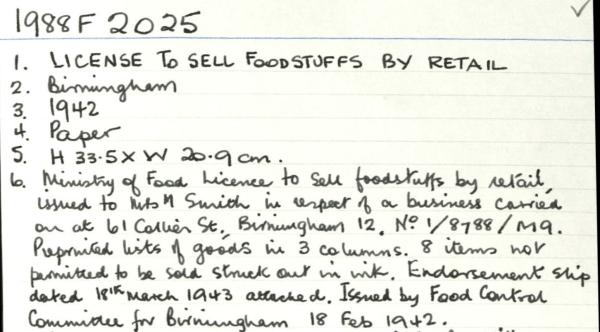 1988F 2025
1. LICENSE TO SELL FOODSTUFFS BY RETAIL
2. Birmingham
3. 1942
4. Paper
5. H 33.5 X W 20.9 cm.
6. Ministry of Food Licence to sell foodstuffs by retail,
issued to Mrs M Smith in respect of a business carried
on at 61 Collier St., Birmingham 12. Nº 1/8788/M9.
Preprinted lists of goods in 3 columns. 8 items not
permitted to be sold struck out in ink. Endorsement slip
dated 18th March 1943 attached. Issued by Food Control
Committee for Birmingham 18 Feb 1942.